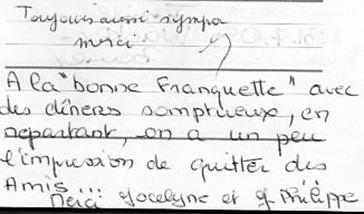 Toujours aussi sympa
merci
A la "bonne Franquette" avec
des dîners somptueux, en
repartant, on a un peu
l'impression de quitter des
Amis...
Merci Jocelyne et J. Philippe